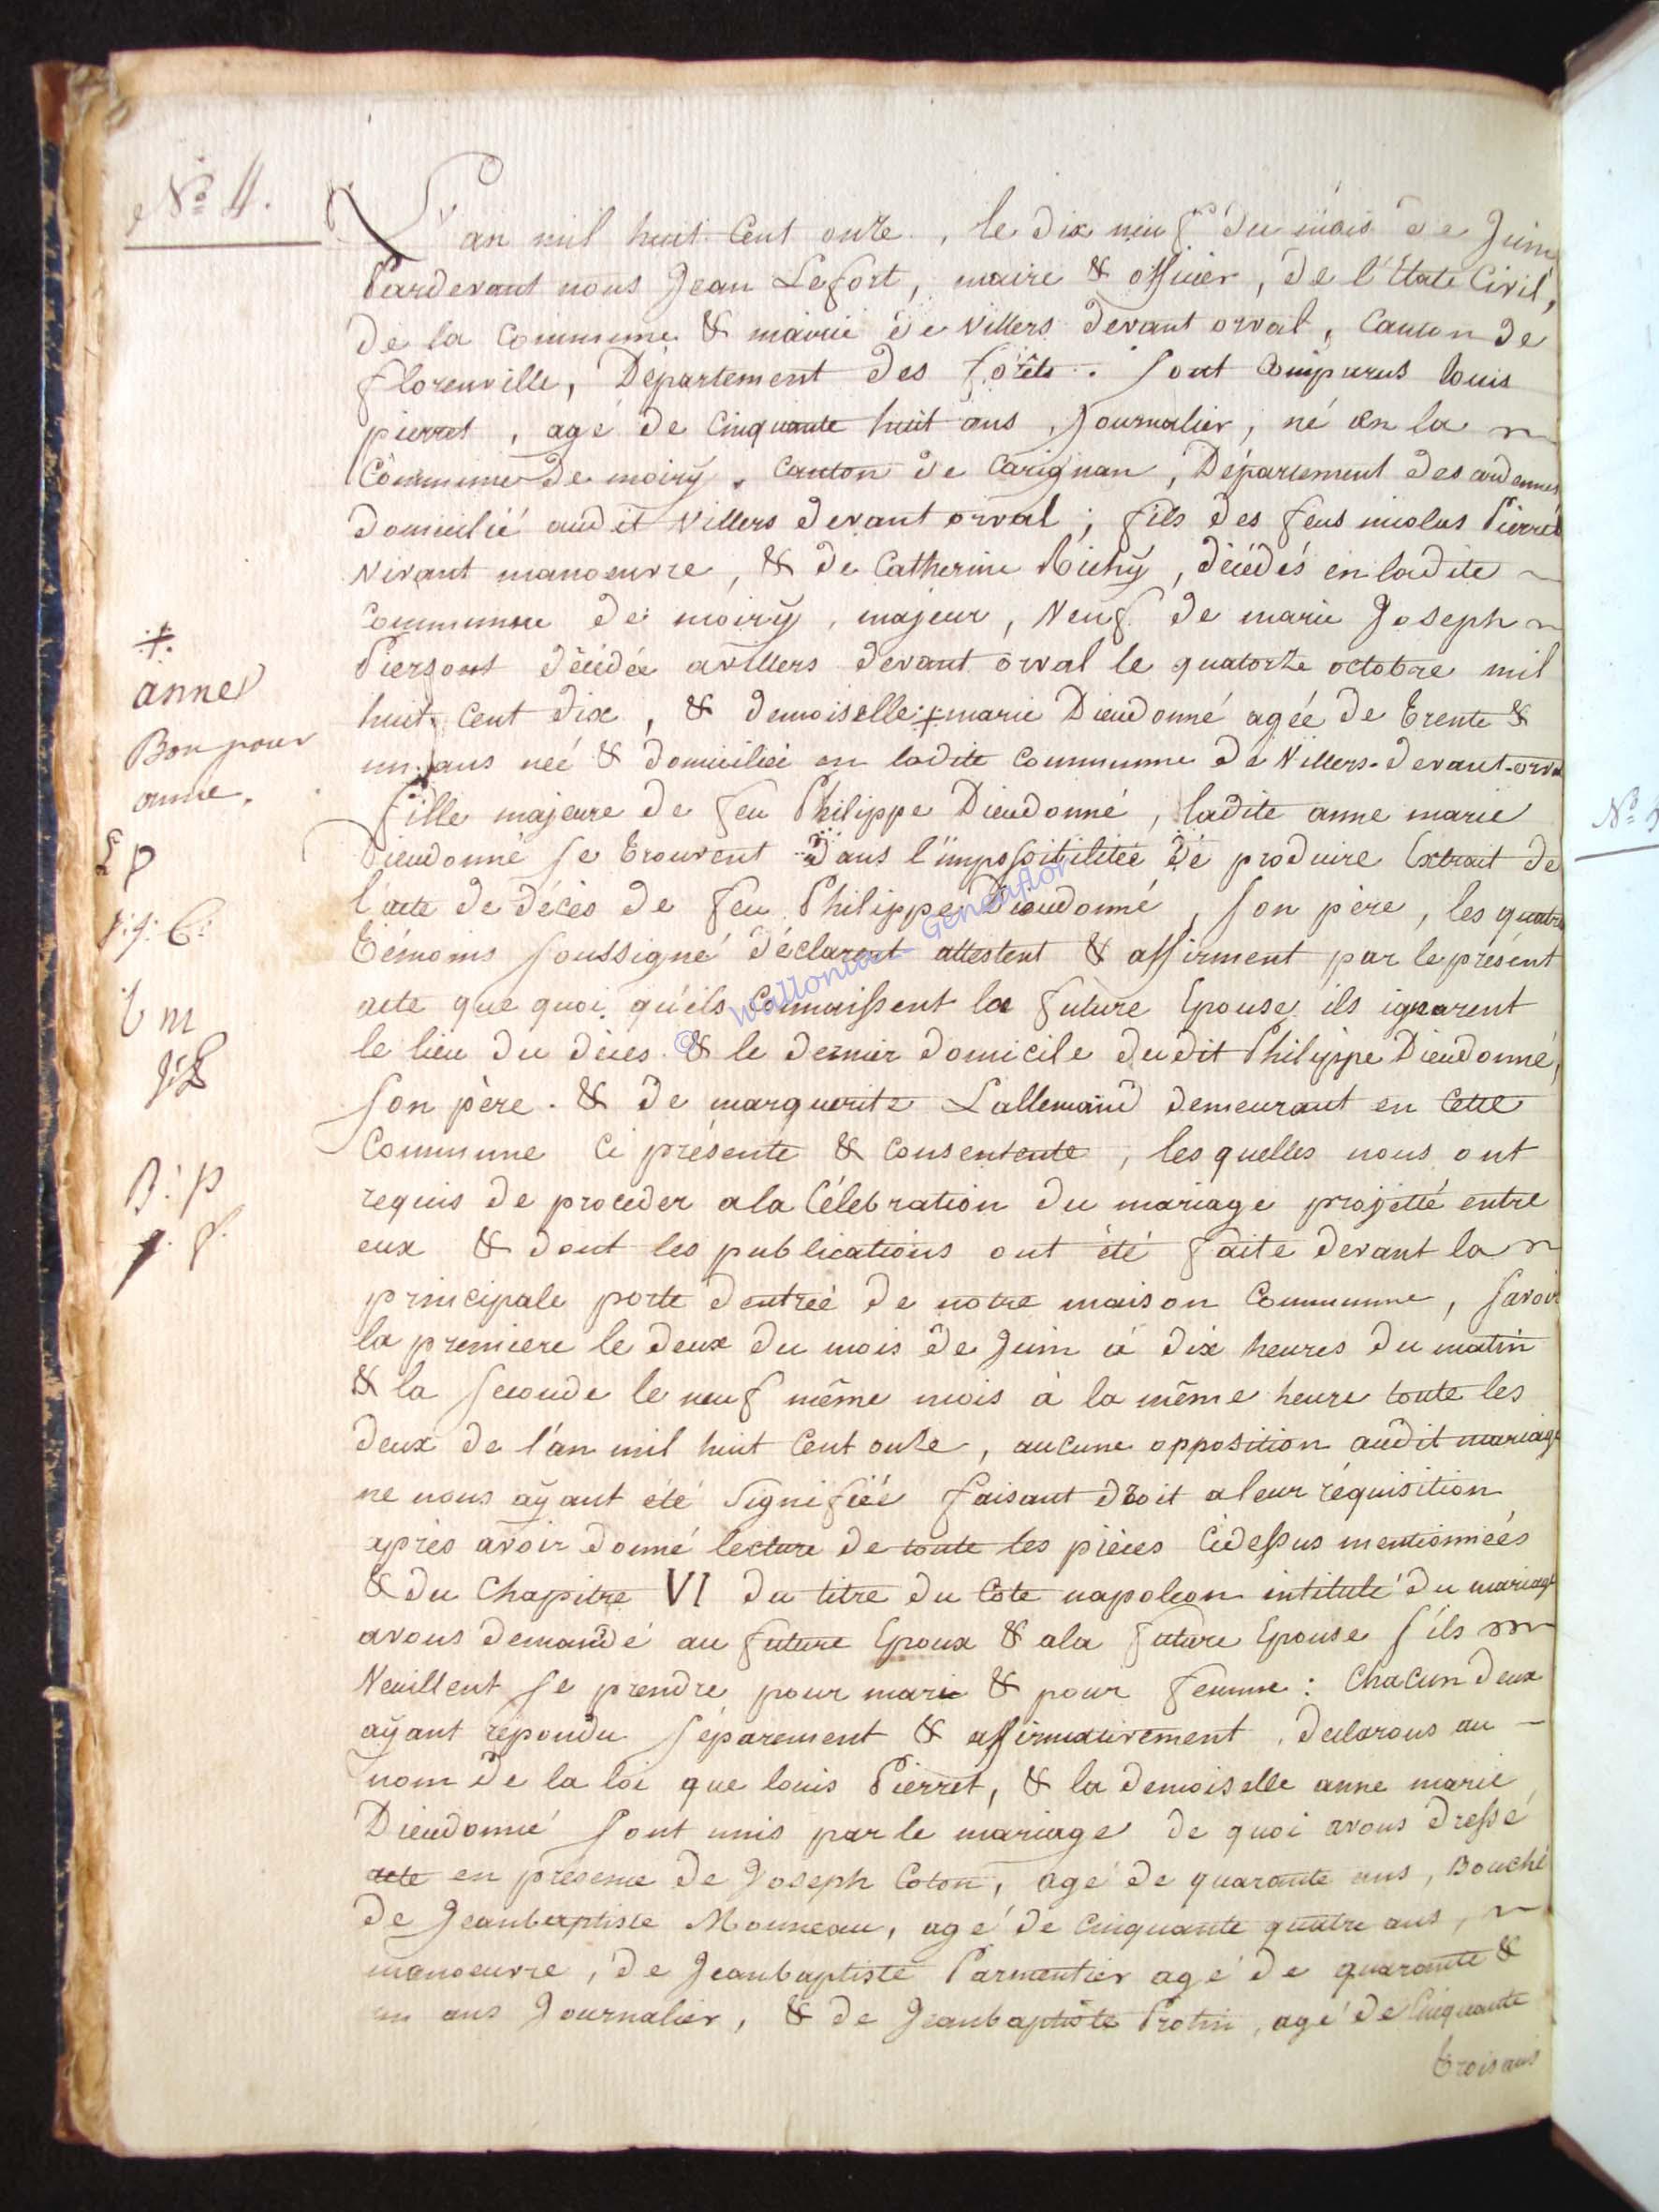 N° 4.
L'an mil huit Cent onze, le dix neuf du mois de Juin
Pardevant nous Jean Lefort, maire & officier, de l'Etate Civil,
de la Commune & mairie de Villers devant orval, Canton de
florenville, Département des forêts. sont Comparus louis
pierret, agé de Cinquante huit ans, Journalier, né en la
Commune de moiry, Canton de Carignan, Département des ardennes
domicilié audit Villers devant orval; fils des feus nicolas Pierret
Vivant manoeuvre, & de Catherine Richy, décédés en ladite
Commune de moiry, majeur, Veuf de marie Joseph
Piersont décédée avillers devant orval le quatorze octobre mil
huit Cent dix, & demoiselle + marie Dieudonné agée de trente &
un ans née & domiciliée en ladite Commune de Villers-devant-orval
fille majeure de feu Philippe Dieudonné, ladite anne marie
Dieudonné se trouvent dans l'impossibilitée de produire Extrait de
l'acte de décès de feu Philippe Dieudonné, son père, les quatre
témoins soussigné déclarent attestent & affirment par le présent
acte que quoi qu'ils Connaissent la future Epouse ils ignorent
le lieu du déces & le dernier domicile dudit Philippe Dieudonné,
son père. & de marguerite Lallemand demeurant en Cette
Commune Ci présente & Consentente, lesquelles nous ont
requis de proceder ala Célebration du mariage projetté entre
eux & dont les publications ont été faite devant la
principale porte dentrée de notre maison Commune, savoir
la premiere le deux du mois de Juin à dix heures du matin
& la seconde le neuf même mois à la même heure toute les
deux de l'an mil huit Cent onze, aucune opposition audit mariage
ne nous aÿant été signifiée faisant droit a leur réquisition
après avoir donné lecture de toute les pièces Cidessus mentionnées
& du Chapitre VI du titre du Cote napoleon intitulé du mariage
avons demandé au future Epoux & ala future Epouse s'ils
Veuillent se prendre pour marie & pour femme: Chacun deux
aÿant répondu séparement & affirmativement, déclarons au
nom de la loi que louis Pierret, & la demoiselle anne marie
Dieudonné sont unis par le mariage de quoi avons dressé
acte en présence de Joseph Coton, agé de quarante ans, Bouché
de Jeanbaptiste Monneau, agé de Cinquante quatre ans,
manoeuvre, de Jeanbaptiste Parmentier agé de quarante &
un ans Journalier, & de Jeanbaptiste Protin, agé de Cinquante
trois ans
+.
anne
Bon pour
anne.
L p
J: L
B: p
© Wallonia - Geneaflor
N° 5